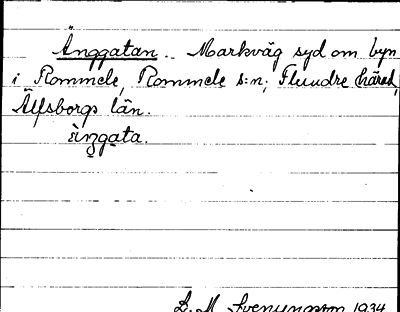 Änggatan. Markväg syd om byn
i Rommele, Rommele s:n; Flundre härad,
Älfsborgs län.
änggata.
L. M. Svenungsson 1934